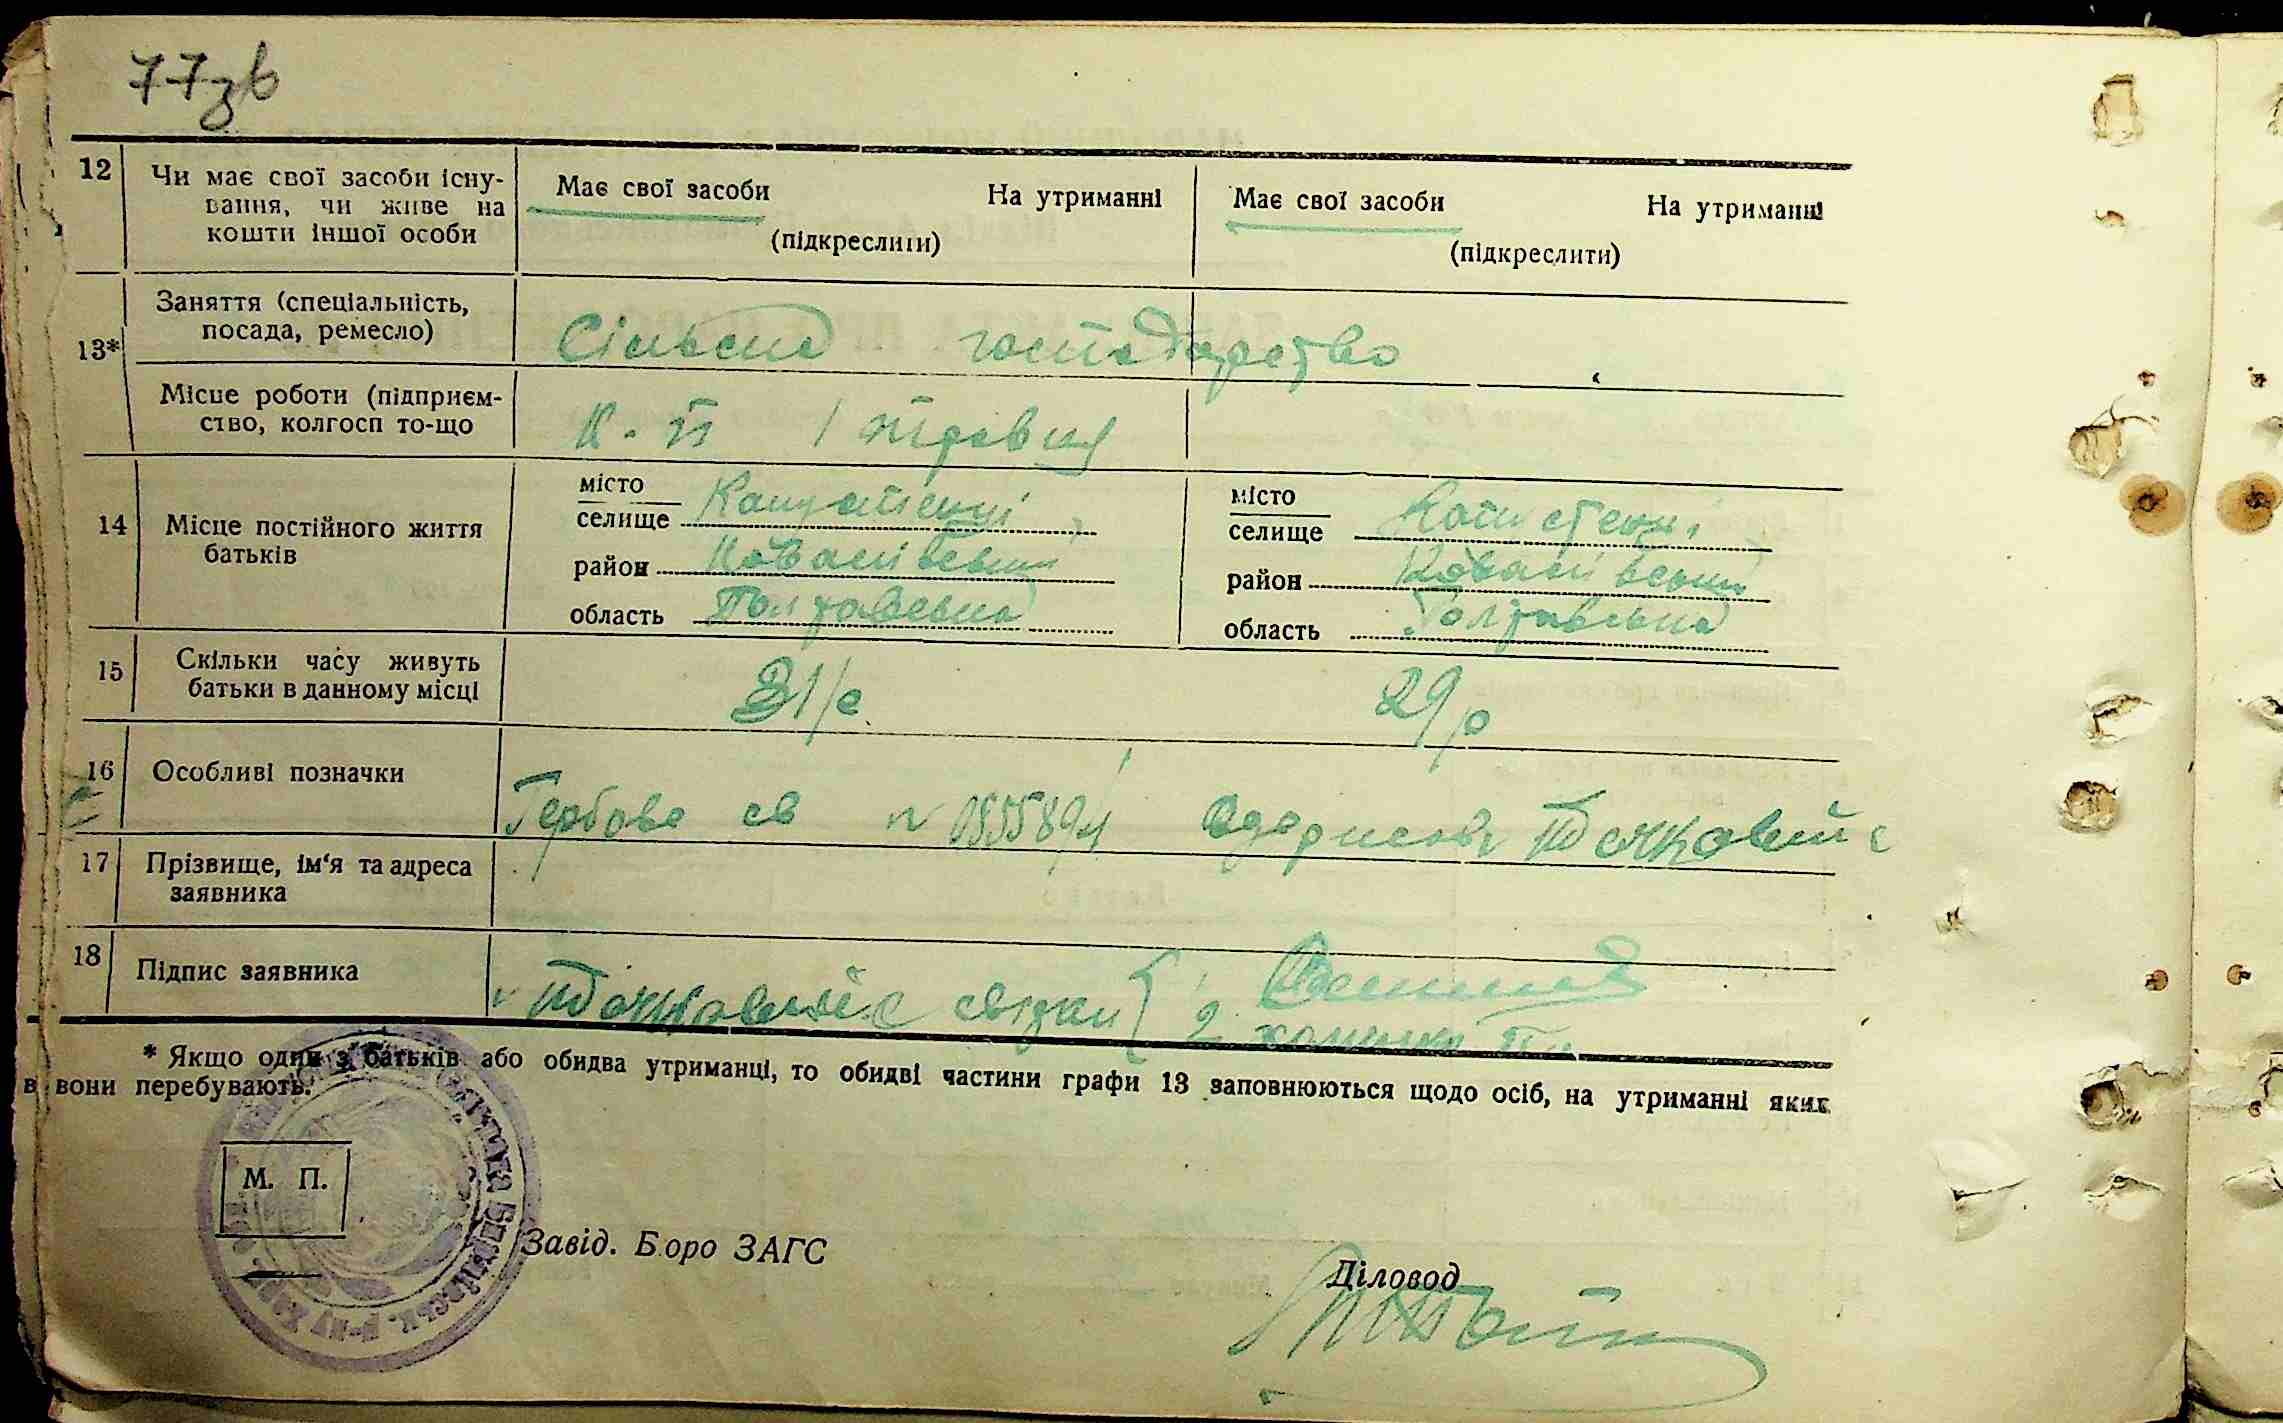 77зв
12 Чи має свої засоби існу-
вання, чи живе на
кошти іншої особи
Має свої засоби На утриманні
(підкреслити)
Має свої засоби На утриманні
(підкреслити)
13*
Заняття (спеціальність,
посада, ремесло)
Сільське господарство
Місце роботи (підприєм-
ство, колгосп то-що
К-п 1 травня
14 Місце постійного життя
батьків
місто
селище
район
область Полтавська
місто
селище
район
область Полтавська
15 Скільки часу живуть
батьки в данному місці
31/р 29/р
16 Особливі позначки
Гербове св № одержав
17 Прізвище, ім'я та адреса
заявника
18 Підпис заявника
свідки { 1
2
* Якщо один з батьків або обидва утриманці, то обидві частини графи 13 заповнюються щодо осіб, на утриманні яких
вони перебувають.
М. П.
Завід. Бюро ЗАГС
Діловод